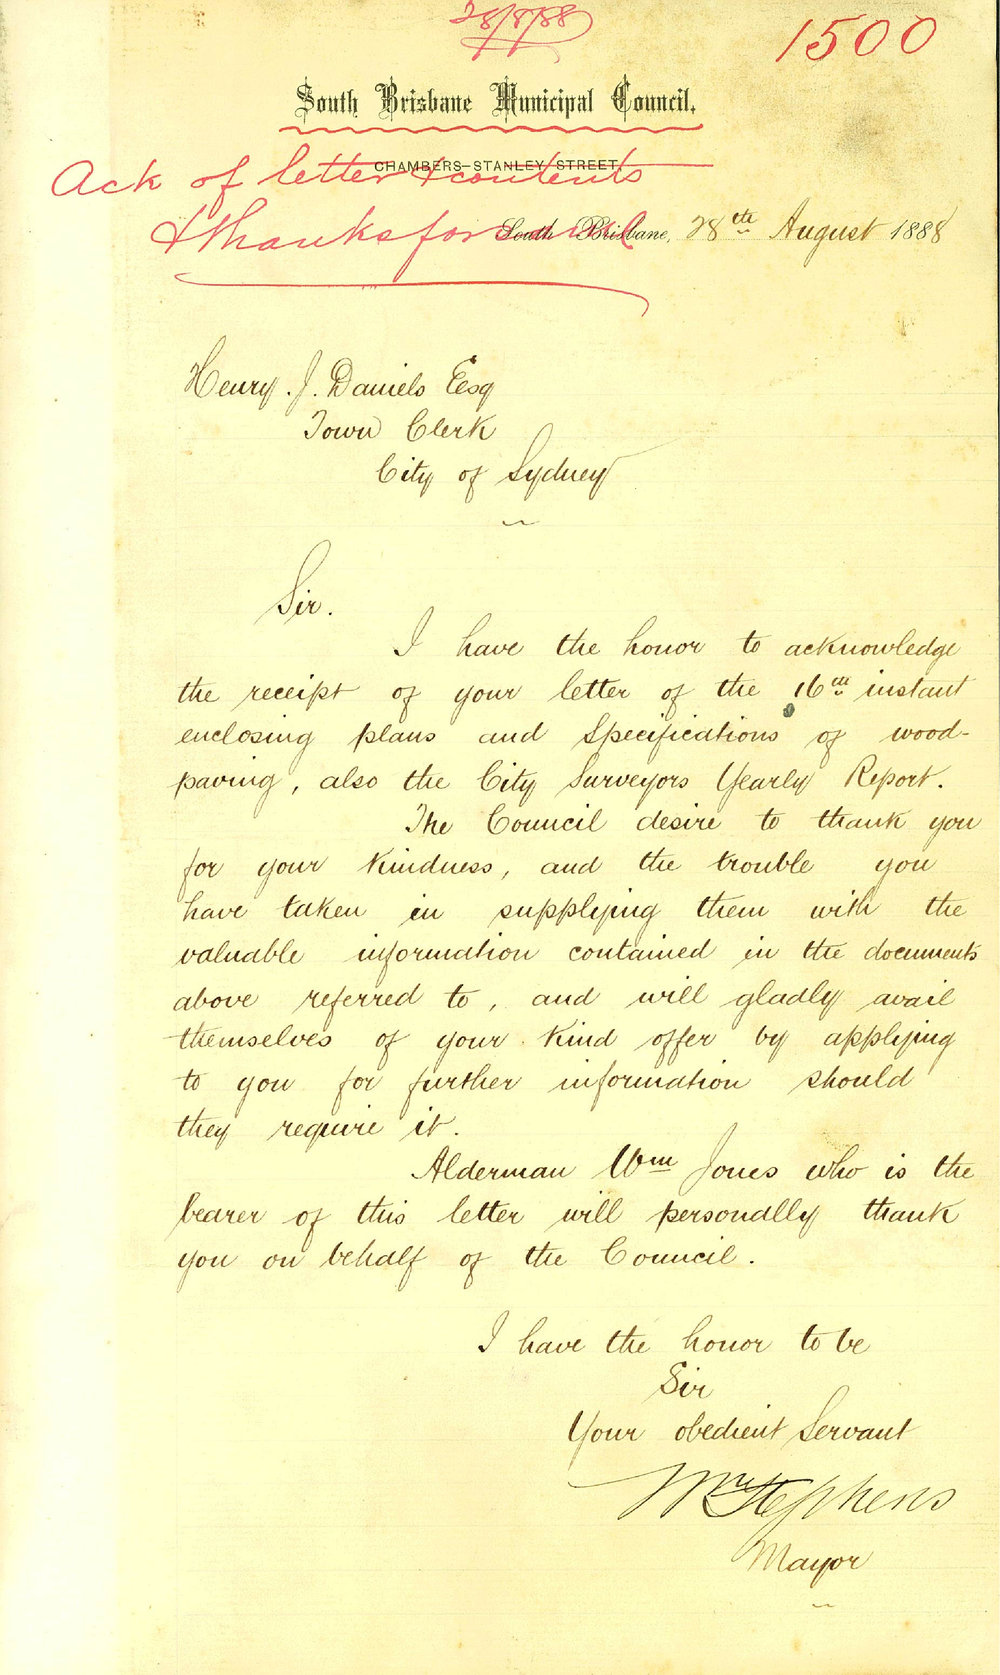 28/8/88
1500
South Brisbane Municipal Council.
CHAMBERS-STANLEY STREET
Ack of letter & contents
& thanks for
South Brisbane, 28th August 1888
Henry. J. Daniels Esq
Town Clerk
City of Sydney
Sir.
I have the honor to acknowledge
the receipt of your letter of the 16th instant
enclosing plans and Specifications of wood-
paving, also the City Surveyors Yearly Report.
The Council desire to thank you
for your kindness, and the trouble you
have taken in supplying them with the
valuable information contained in the documents
above referred to, and will gladly avail
themselves of your kind offer by applying
to you for further information should
they require it.
Alderman Wm Jones who is the
bearer of this letter will personally thank
you on behalf of the Council.
I have the honor to be
Sir
Your obedient Servant
Wm Stephens
Mayor